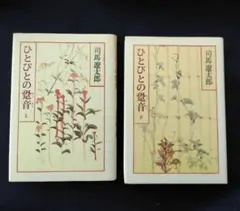 司馬遼太郎
ひとびとの跫音
上
司馬遼太郎
ひとびとの跫音
下